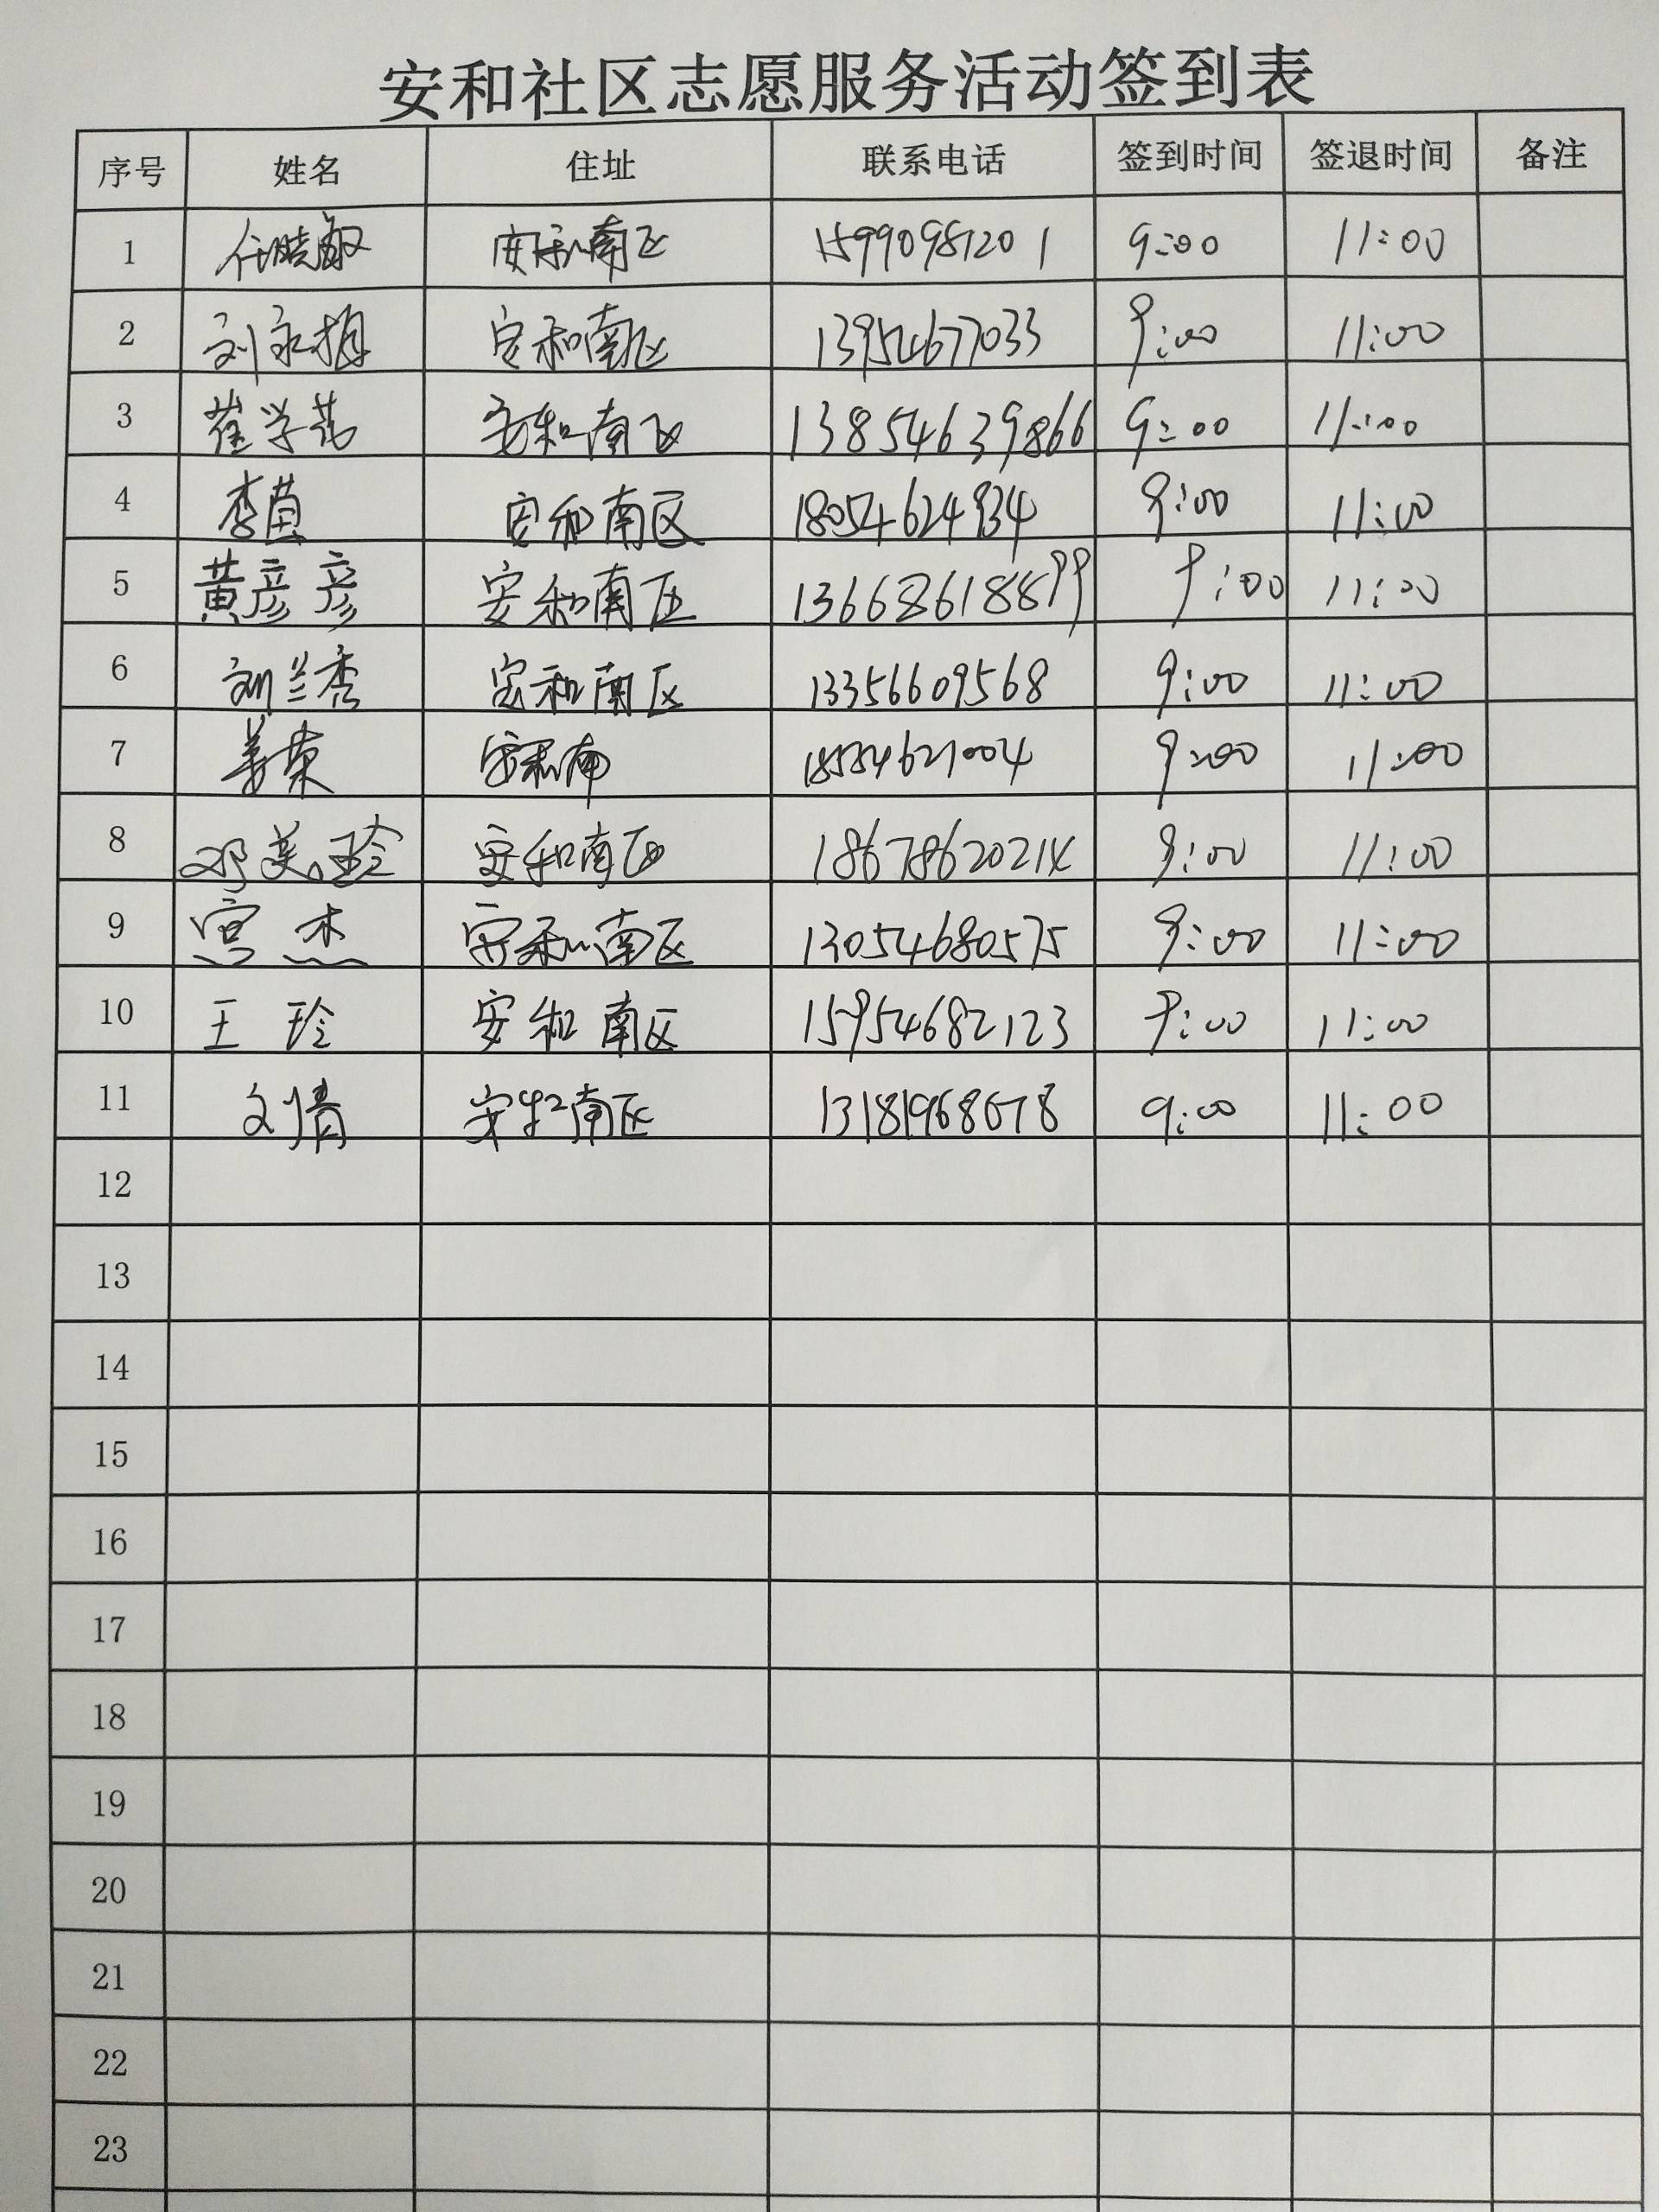 安和社区志愿服务活动签到表
序号 姓名 住址 联系电话 签到时间 签退时间 备注
1 任晓敏 安和南区 15990981201 9:00 11:00
2 刘永梅 安和南区 13954677033 9:00 11:00
3 崔学芹 安和南区 13854639866 9:00 11:00
4 李茵 安和南区 18054624934 9:00 11:00
5 黄彦彦 安和南区 13668618899 9:00 11:00
6 刘兰秀 安和南区 13356609568 9:00 11:00
7 姜荣 安和南 18554621004 9:00 11:00
8 邓美玲 安和南区 18678620214 9:00 11:00
9 宫杰 安和南区 13054680575 9:00 11:00
10 王玲 安和南区 15954682123 9:00 11:00
11 刘倩 安和南区 13181968678 9:00 11:00
12
13
14
15
16
17
18
19
20
21
22
23